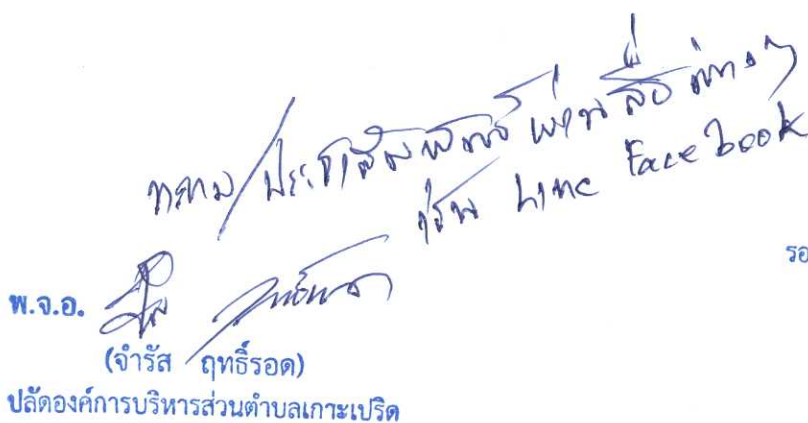 ทราบ/ประชาสัมพันธ์ผ่านสื่อต่างๆ
เช่น Line Facebook
รอ
พ.จ.อ.
(จำรัส ฤทธิ์รอด)
ปลัดองค์การบริหารส่วนตำบลเกาะเปริด